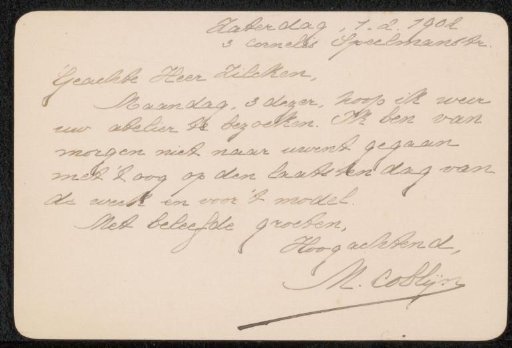 Zaterdag, 1.2.1902
3 Cornelis Speelmanstr.
Geachte Heer Zilcken,
Maandag, 3 dezer, hoop ik weer
uw atelier te bezoeken. Ik ben van
morgen niet naar uwent gegaan
met 't oog op den laatsten dag van
de week en voor 't model.
Met beleefde groeten,
Hoogachtend,
M. Coblijn